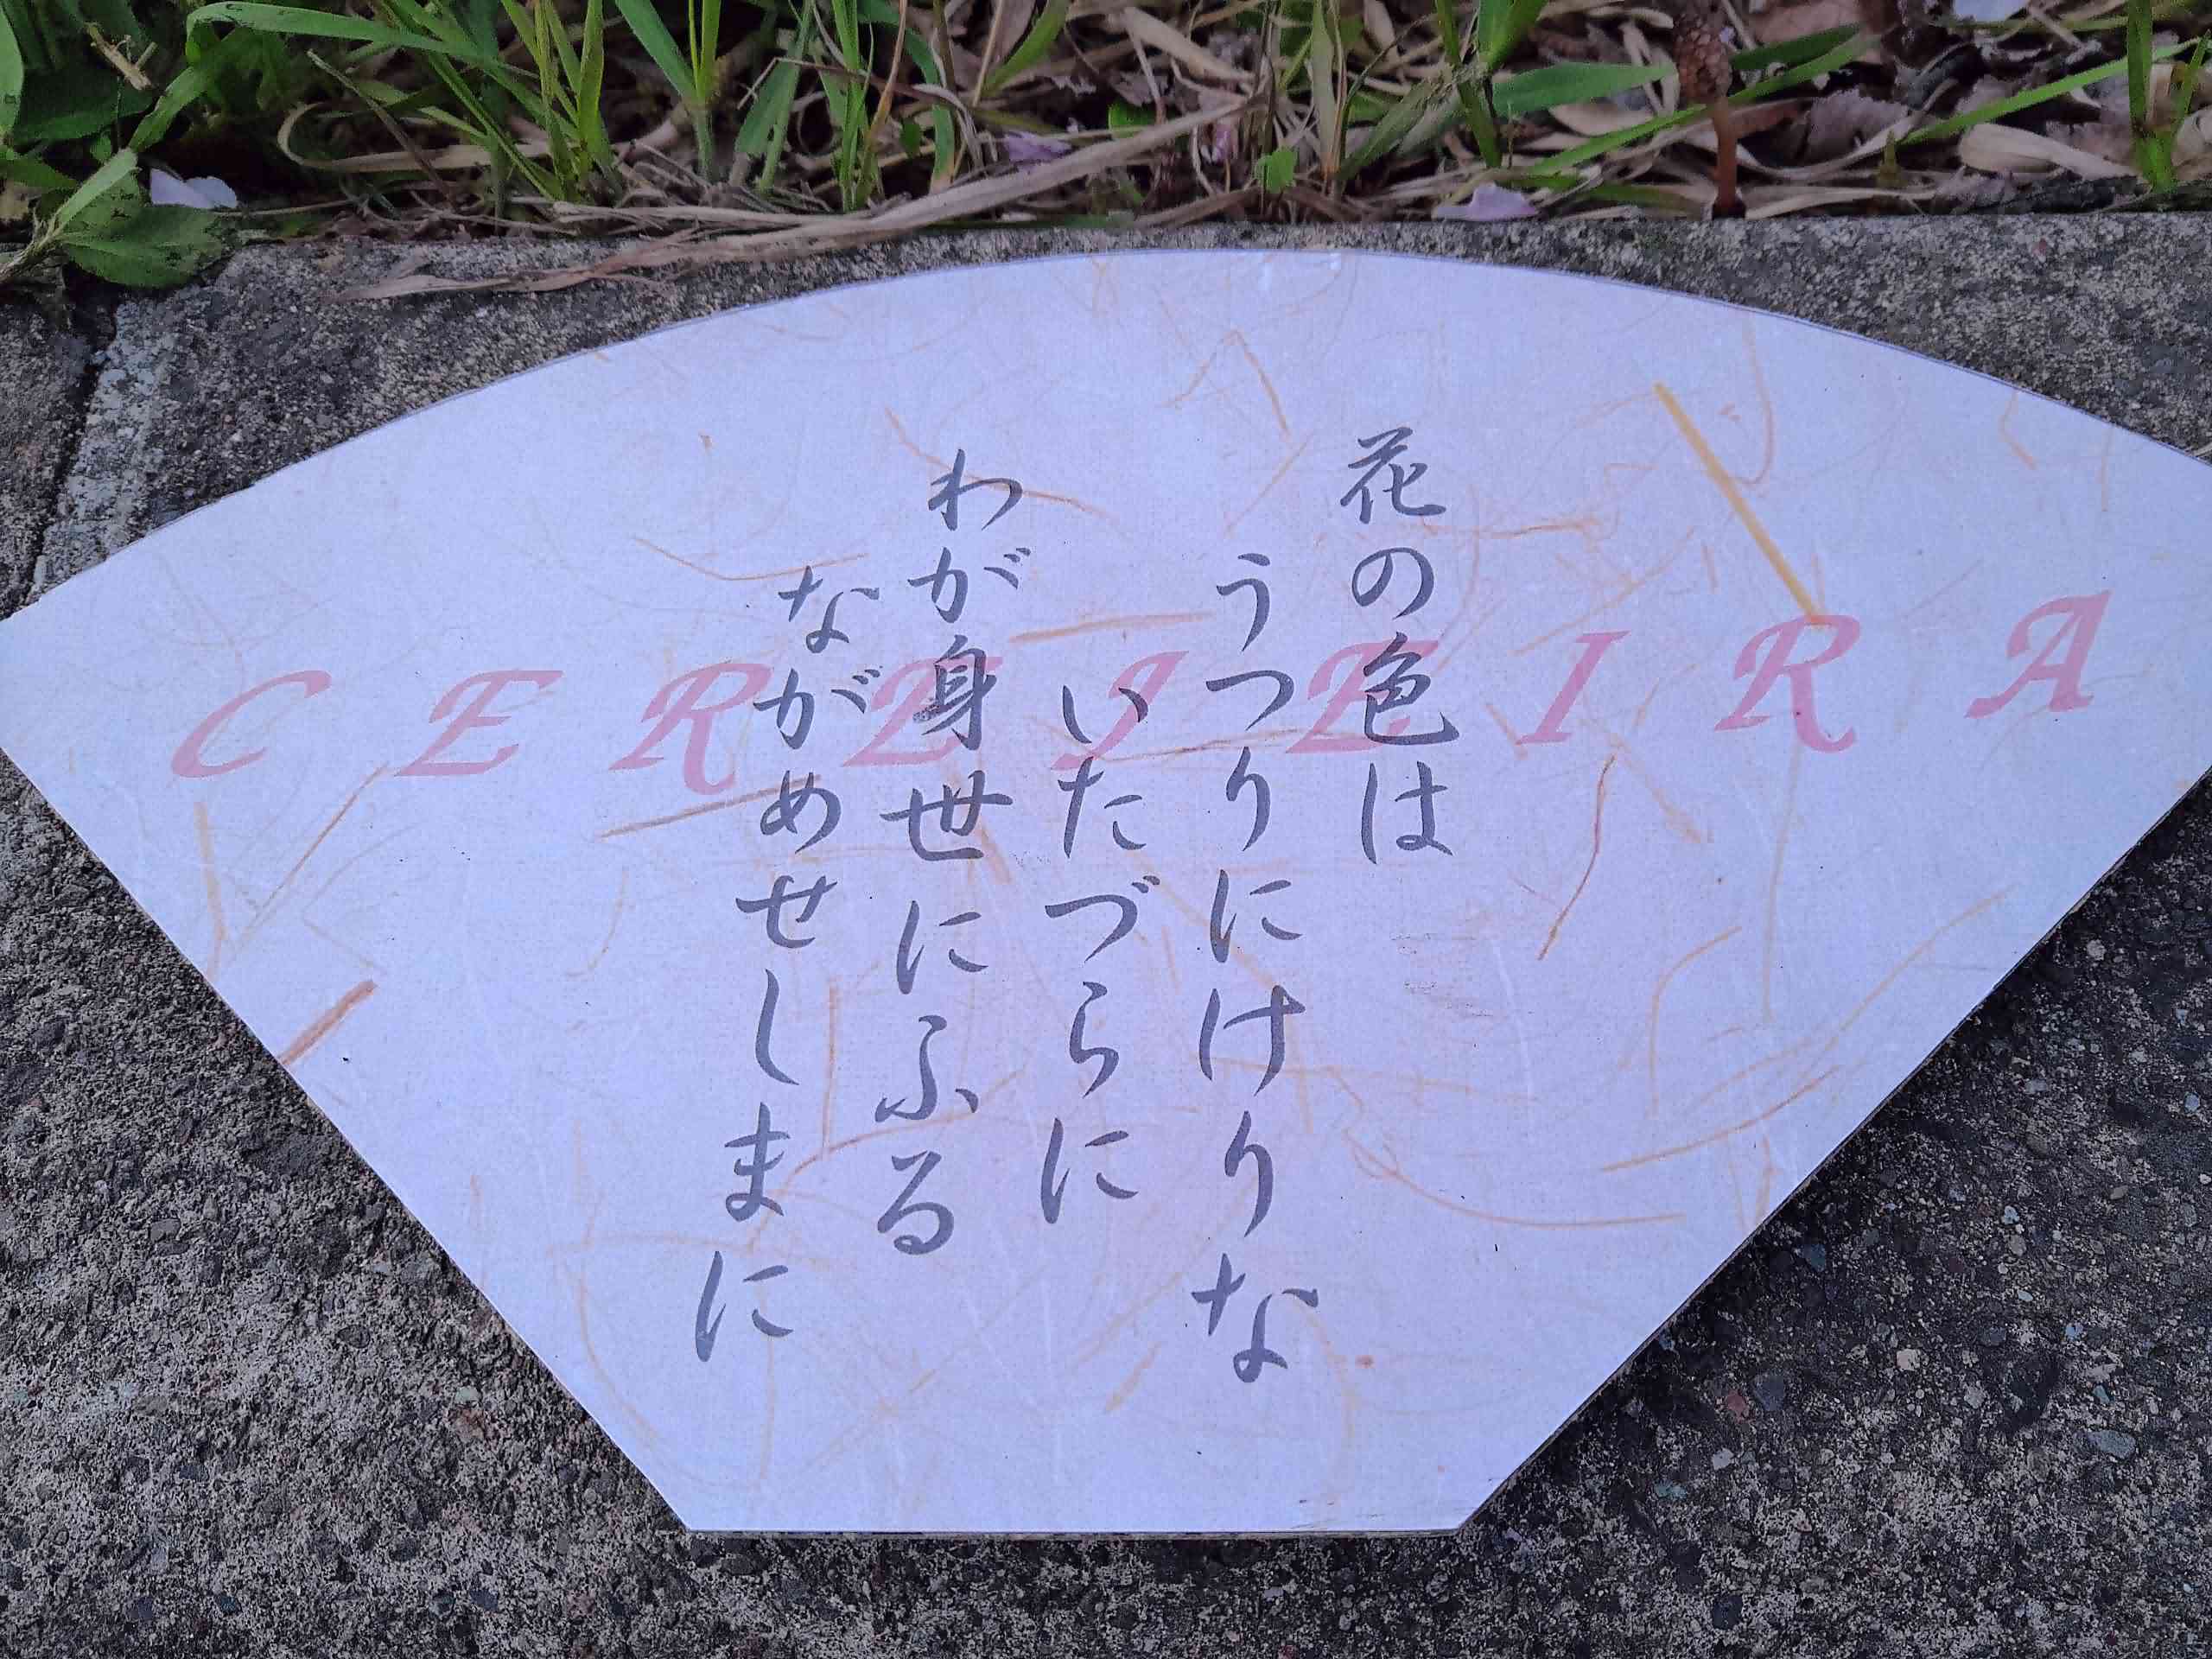 花の色は
うつりにけりな
いたづらに
わが身世にふる
ながめせしまに
CEREJEIRA